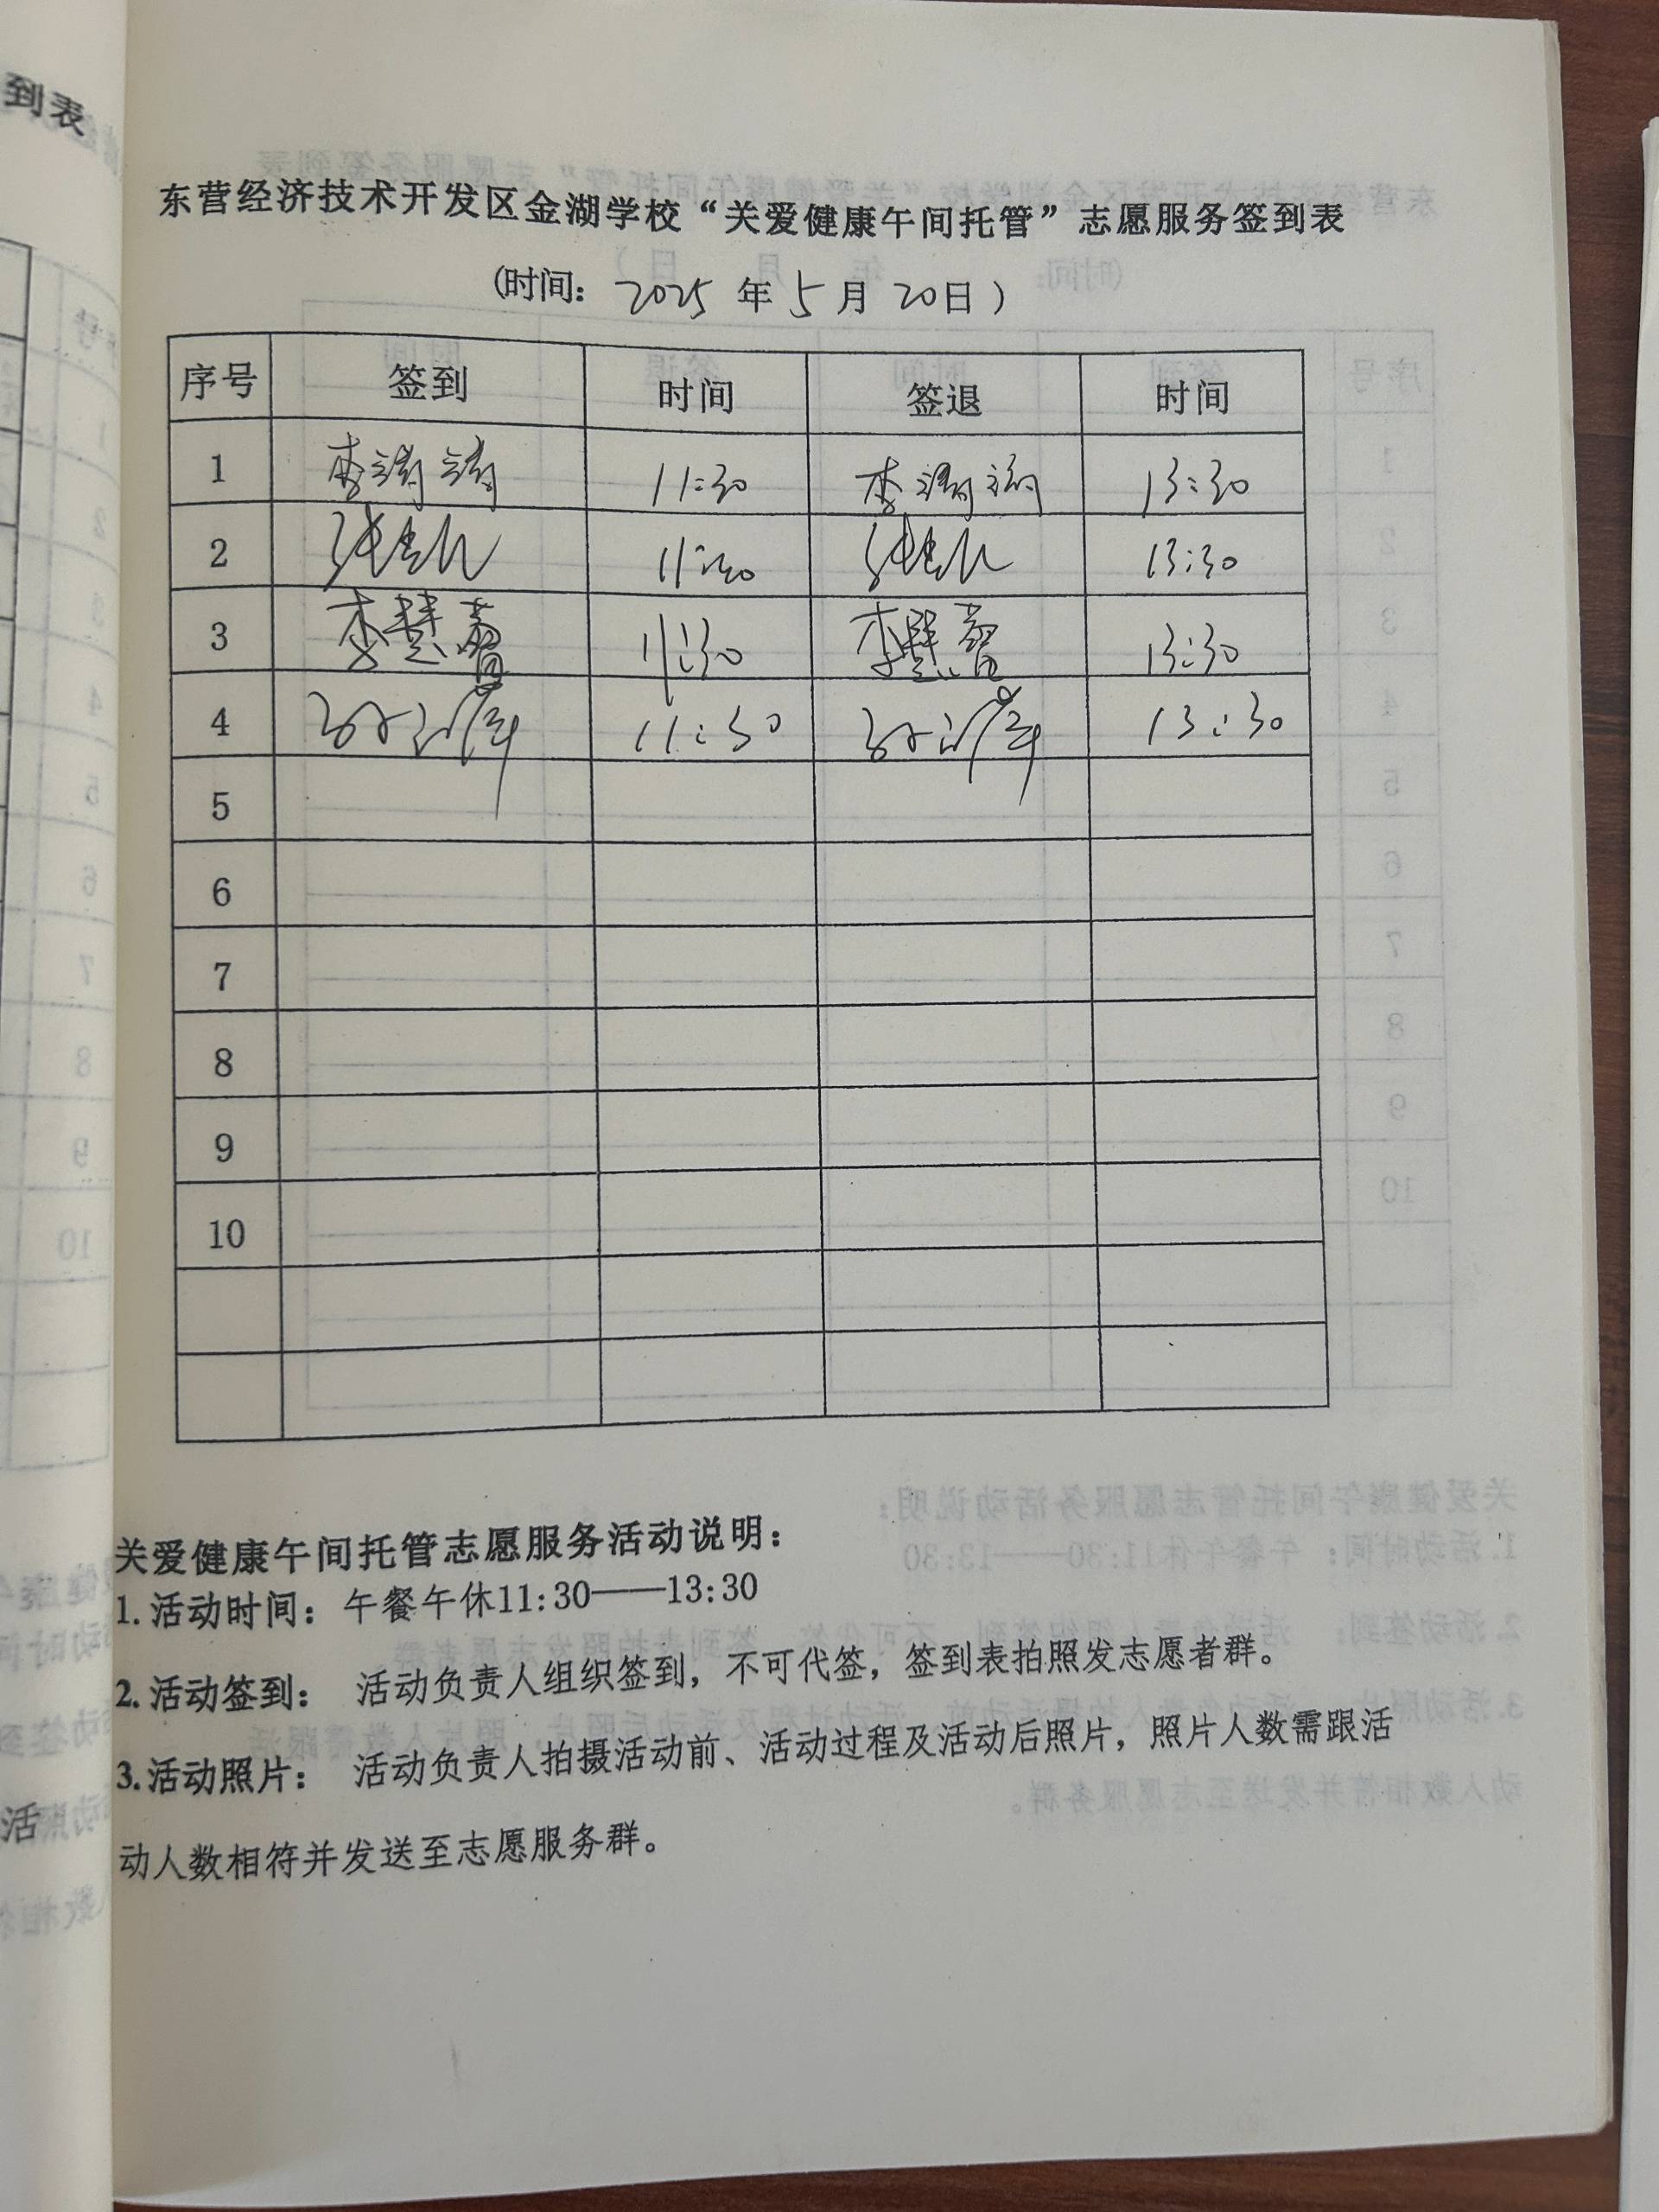 到表
东营经济技术开发区金湖学校“关爱健康午间托管”志愿服务签到表
(时间: 2025 年 5 月 20日)
序号 签到 时间 签退 时间
1 李 11:30 李 13:30
2 11:30 13:30
3 李慧 11:30 李慧 13:30
4 11:30 13:30
5
6
7
8
9
10
关爱健康午间托管志愿服务活动说明:
1.活动时间: 午餐午休11:30——13:30
2.活动签到: 活动负责人组织签到,不可代签,签到表拍照发志愿者群。
3.活动照片: 活动负责人拍摄活动前、活动过程及活动后照片,照片人数需跟活
动人数相符并发送至志愿服务群。
活